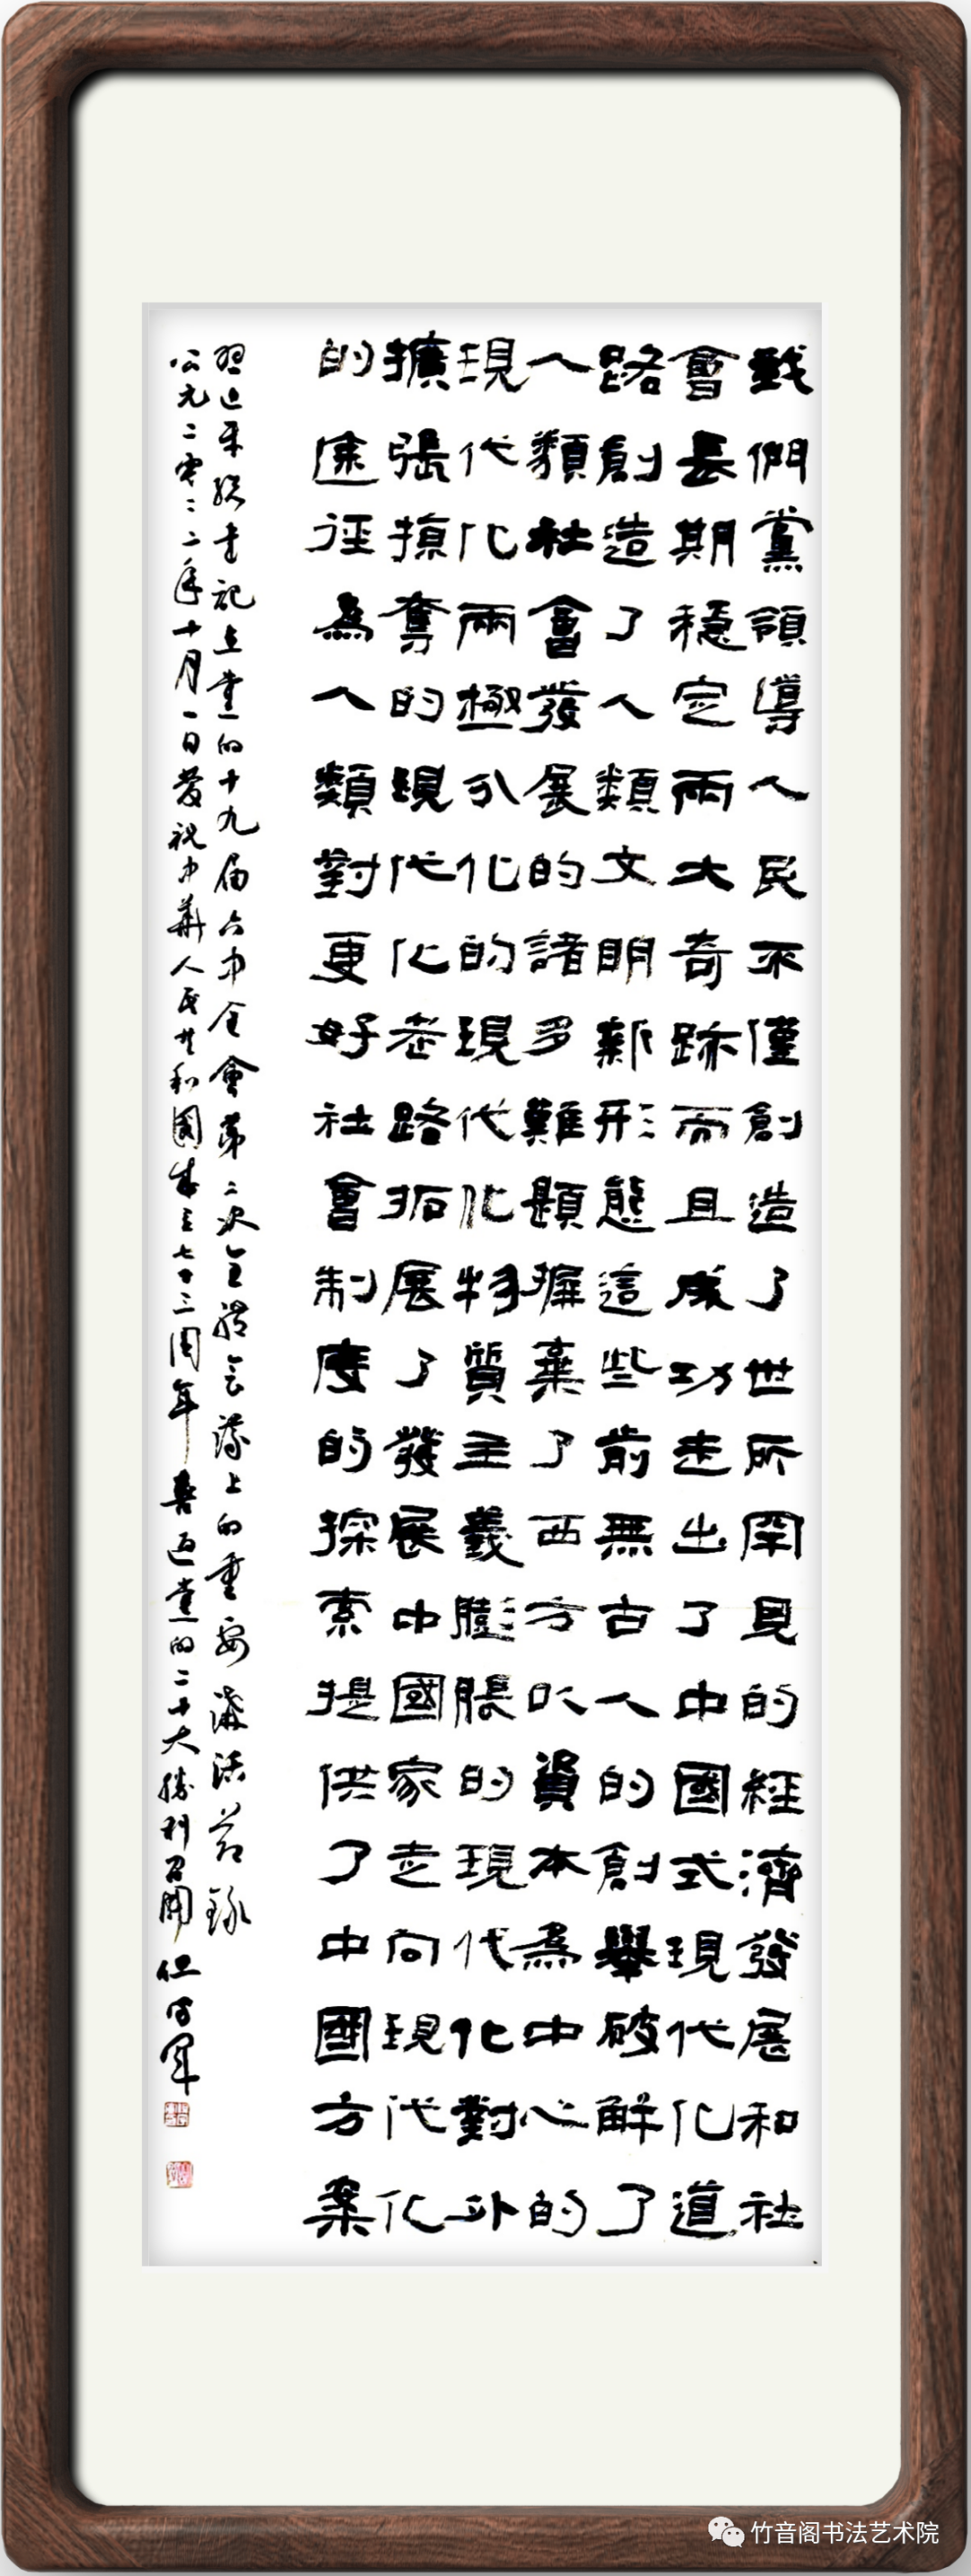 我們黨領導人民不僅創造了世所罕見的經濟發展和社
會長期穩定兩大奇跡而且成功走出了中國式現代化道
路創造了人類文明新形態這些前無古人的創舉破解了
人類社會發展的諸多難題摒棄了西方以資本為中心的
現代化兩極分化的現代化物質主義膨脹的現代化對外
擴張掠奪的現代化老路拓展了發展中國家走向現代化
的途徑為人類對更好社會制度的探索提供了中國方案
習近平總書記在黨的十九届六中全會第二次全體會議上的重要講話節錄
公元二零二二年十月一日慶祝中華人民共和國成立七十三周年喜迎黨的二十大勝利召開
竹音阁书法艺术院